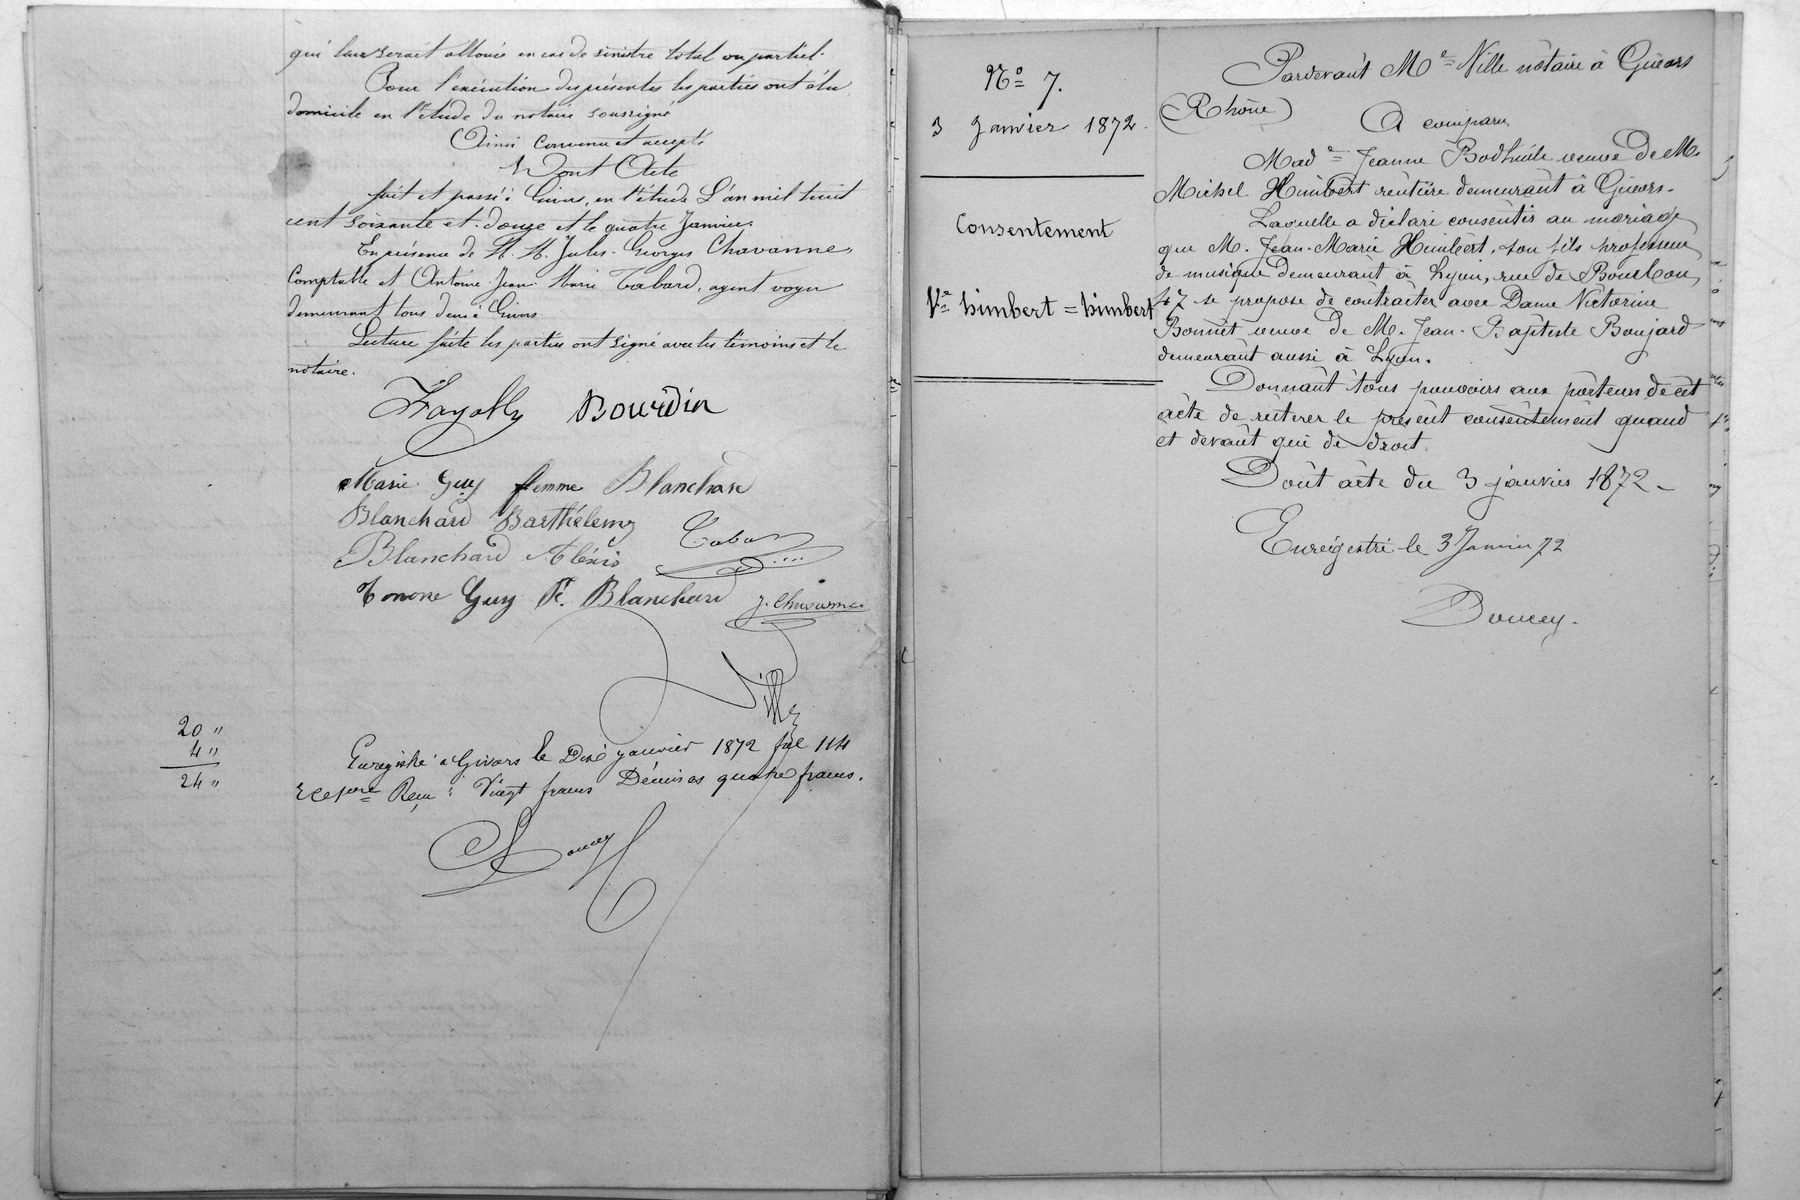 qui leur serait allouée en cas de sinistre total ou partiel.
Pour l'exécution des présentes les parties ont élu
domicile en l'étude du notaire soussigné
Ainsi convenu et accepté
Dont Acte
fait et passé à Givors, en l'étude L'an mil huit
cent soixante et douze et le quatre Janvier.
En présence de M. M. Jules Georges Chavanne,
Comptable et Antoine Jean Marie Tabard, agent voyer
demeurant tous deux à Givors
Lecture faite les parties ont signé avec les témoins et le
notaire.
Fayolle Bourdin
Marie Guy femme Blanchard
Blanchard Barthélemy
Tabar
Blanchard Alexis
Guy Fe. Blanchard J. Chavanne
Ville
20 "
4 "
24 "
Enregistré à Givors le Dix janvier 1872 fol 114
Reçu : Vingt francs Décimes quatre francs.
Doucey
No 7.
3 Janvier 1872.
Consentement
Ve himbert = himbert
Pardevant Me Ville notaire à Givors
(Rhône)
A comparu
Made Jeanne veuve de M.
Michel Humbert rentière demeurant à Givors.
Laquelle a déclaré consentir au mariage
que M. Jean-Marie Humbert, son fils professeur
de musique demeurant à Lyon, rue de Bourbon,
47 se propose de contracter avec Dame Victorine
Bonnet veuve de M. Jean-Baptiste Boujard
demeurant aussi à Lyon.
Donnant tous pouvoirs aux porteurs de cet
acte de réitérer le présent consentement quand
et devant qui de droit.
Dont acte du 3 janvier 1872 -
Enregistré le 3 Janvier 72
Doucey.